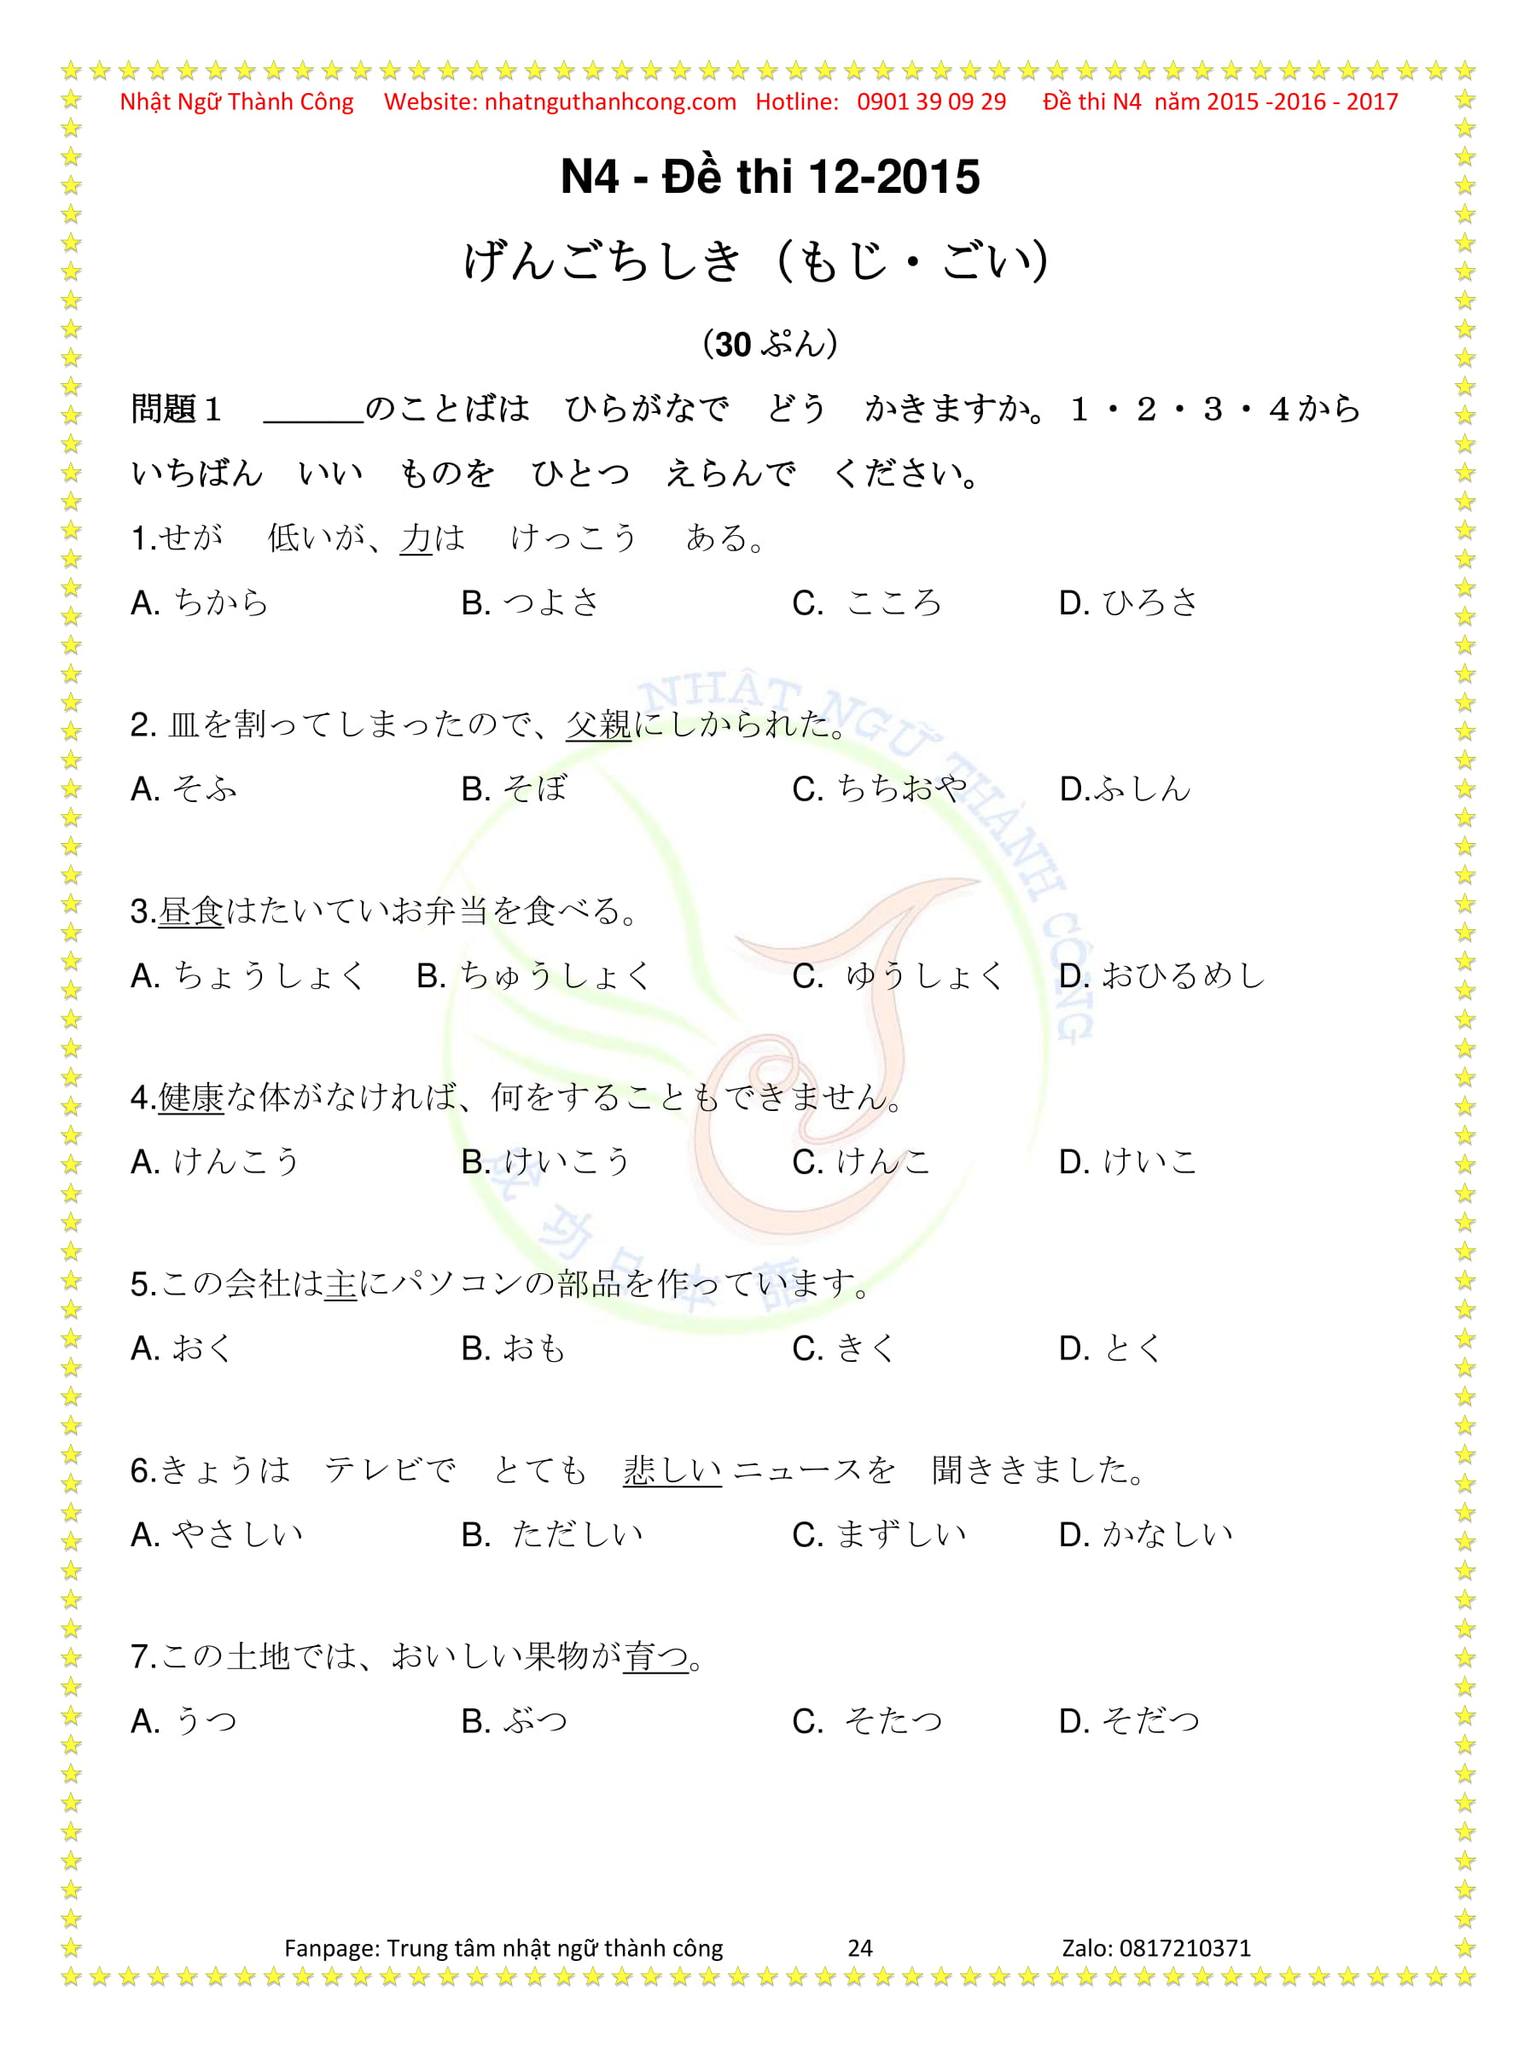 Nhật Ngữ Thành Công Website: nhatnguthanhcong.com Hotline: 0901 39 09 29 Đề thi N4 năm 2015 -2016 - 2017
N4 - Đề thi 12-2015
げんごちしき（もじ・ごい）
（30 ぷん）
問題１　______のことばは　ひらがなで　どう　かきますか。１・２・３・４から
いちばん　いい　ものを　ひとつ　えらんで　ください。
1.せが　低いが、力は　けっこう　ある。
A. ちから B. つよさ C. こころ D. ひろさ
2. 皿を割ってしまったので、父親にしかられた。
A. そふ B. そぼ C. ちちおや D.ふしん
3.昼食はたいていお弁当を食べる。
A. ちょうしょく B. ちゅうしょく C. ゆうしょく D. おひるめし
4.健康な体がなければ、何をすることもできません。
A. けんこう B. けいこう C. けんこ D. けいこ
5.この会社は主にパソコンの部品を作っています。
A. おく B. おも C. きく D. とく
6.きょうは　テレビで　とても　悲しい ニュースを　聞ききました。
A. やさしい B. ただしい C. まずしい D. かなしい
7.この土地では、おいしい果物が育つ。
A. うつ B. ぶつ C. そたつ D. そだつ
NHẬT NGỮ THÀNH CÔNG
成功日本語
Fanpage: Trung tâm nhật ngữ thành công 24 Zalo: 0817210371